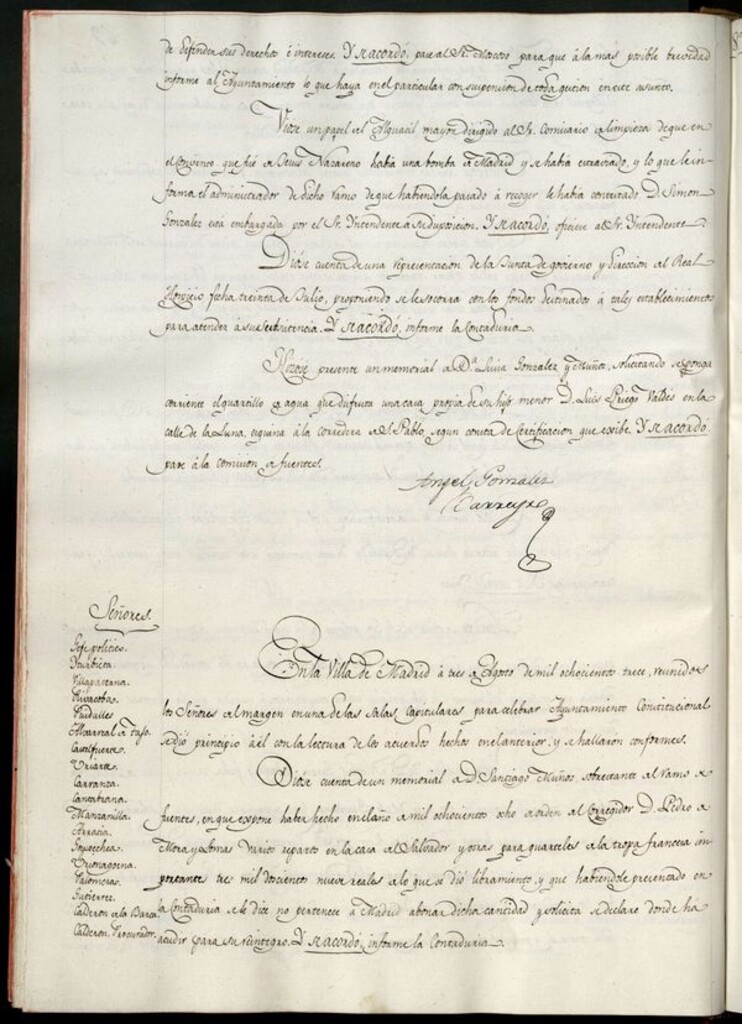 de defender sus derechos é intereses. Y se acordó, pase al Sr. para que á la mas posible brevedad
informe al Ayuntamiento lo que haya en el particular con suspension de toda gestion en este asunto.
Viose un papel del Alguacil mayor dirigido al Sr. Comisario de limpieza de que en
el Convento que fué de Jesus Nazareno habia una bomba de Madrid y se habia extraviado, y lo que le in-
forma el administrador de dicho ramo de que habiendola pasado á recoger le habia contestado D. Simon
Gonzalez está embargada por el Sr. Yntendente a su disposicion. Y se acordó, oficiese al Sr. Yntendente.
Diose cuenta de una representacion de la Junta de govierno y direccion del Real
Hospicio fecha treinta de Julio, proponiendo se le socorra con los fondos destinados á tales establecimientos
para atender á su subsistencia. Y se acordó, informe la Contaduria.
Hizose presente un memorial de D.ª Luisa Gonzalez y Muñoz, solicitando se ponga
corriente el quartillo de agua que disfruta una casa propia de su hijo menor D. Luis Priego Valdes en la
calle de la Luna, esquina á la corredera de S. Pablo, segun consta de Certificacion que exibe. Y se acordó
pase á la comision de fuentes.
Angel Gonzalez
Barreyro
Señores.
Gefe politico.
Yturbieta.
Villapaterna.
Rivacobas.
Paidalles
Almarral de Tajo.
Castelfuerte.
Uriarte.
Carranza.
Cantabrana.
Manzanilla.
Arrasia.
Goyecechea.
Urionagoena.
Palomeras.
Gutierrez.
Calderon de la Barca
Calderon, Procurador.
En la Villa de Madrid á tres de Agosto de mil ochocientos trece, reunidos
los Señores del margen en una de las Salas Capitulares para celebrar Ayuntamiento Constitucional
se dió principio á él con la lectura de los acuerdos hechos en el anterior, y se hallaron conformes.
Diose cuenta de un memorial de D. Santiago Muñoz, sobrestante del ramo de
fuentes, en que expone haber hecho en el año de mil ochocientos ocho de orden del Corregidor D. Pedro de
Mora y Lomas varios reparos en la casa del Salvador y otras para quarteles de la tropa francesa im-
portantes tres mil doscientos nueve reales de lo que se dió libramiento, y que habiendole presentado en
la Contaduria se le dice no pertenece á Madrid abonar dicha cantidad y solicita se declare donde ha
acudir para su reintegro. Y se acordó, informe la Contaduria.